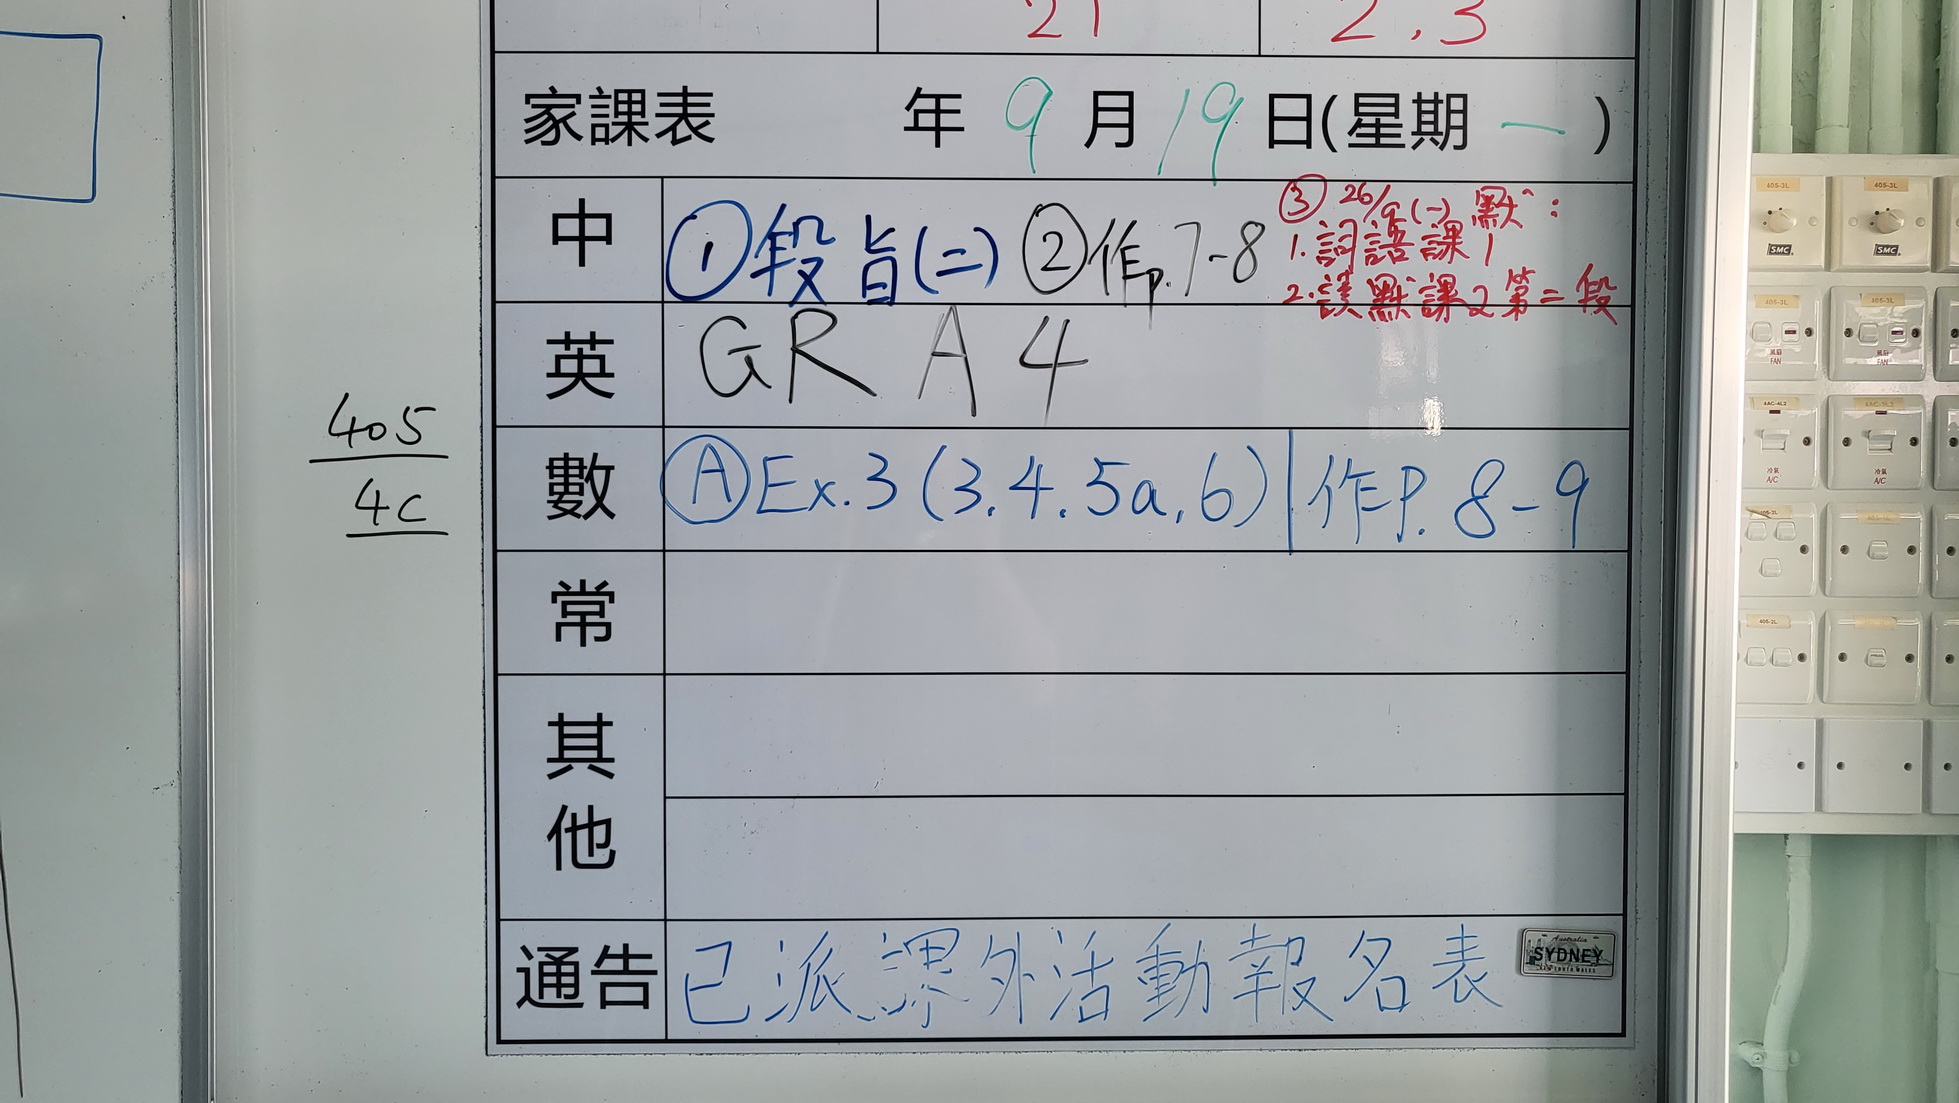 21
2.3
家課表 年9月19日(星期一)
中 ①段旨(二) ②作p.7-8
③ 26/9(一) 默:
1.詞語課1
2.讀默課2第二段
英 GR A4
數 Ⓐ Ex.3 (3.4.5a.6) | 作P. 8-9
常
其他
通告 已派課外活動報名表
Australia
SYDNEY
405
4C
405-3L
405-3L
SMC
SMC
405-3L
405-3L
風扇
FAN
風扇
FAN
4AC-4L2
冷氣
A/C
冷氣
A/C
405-2L